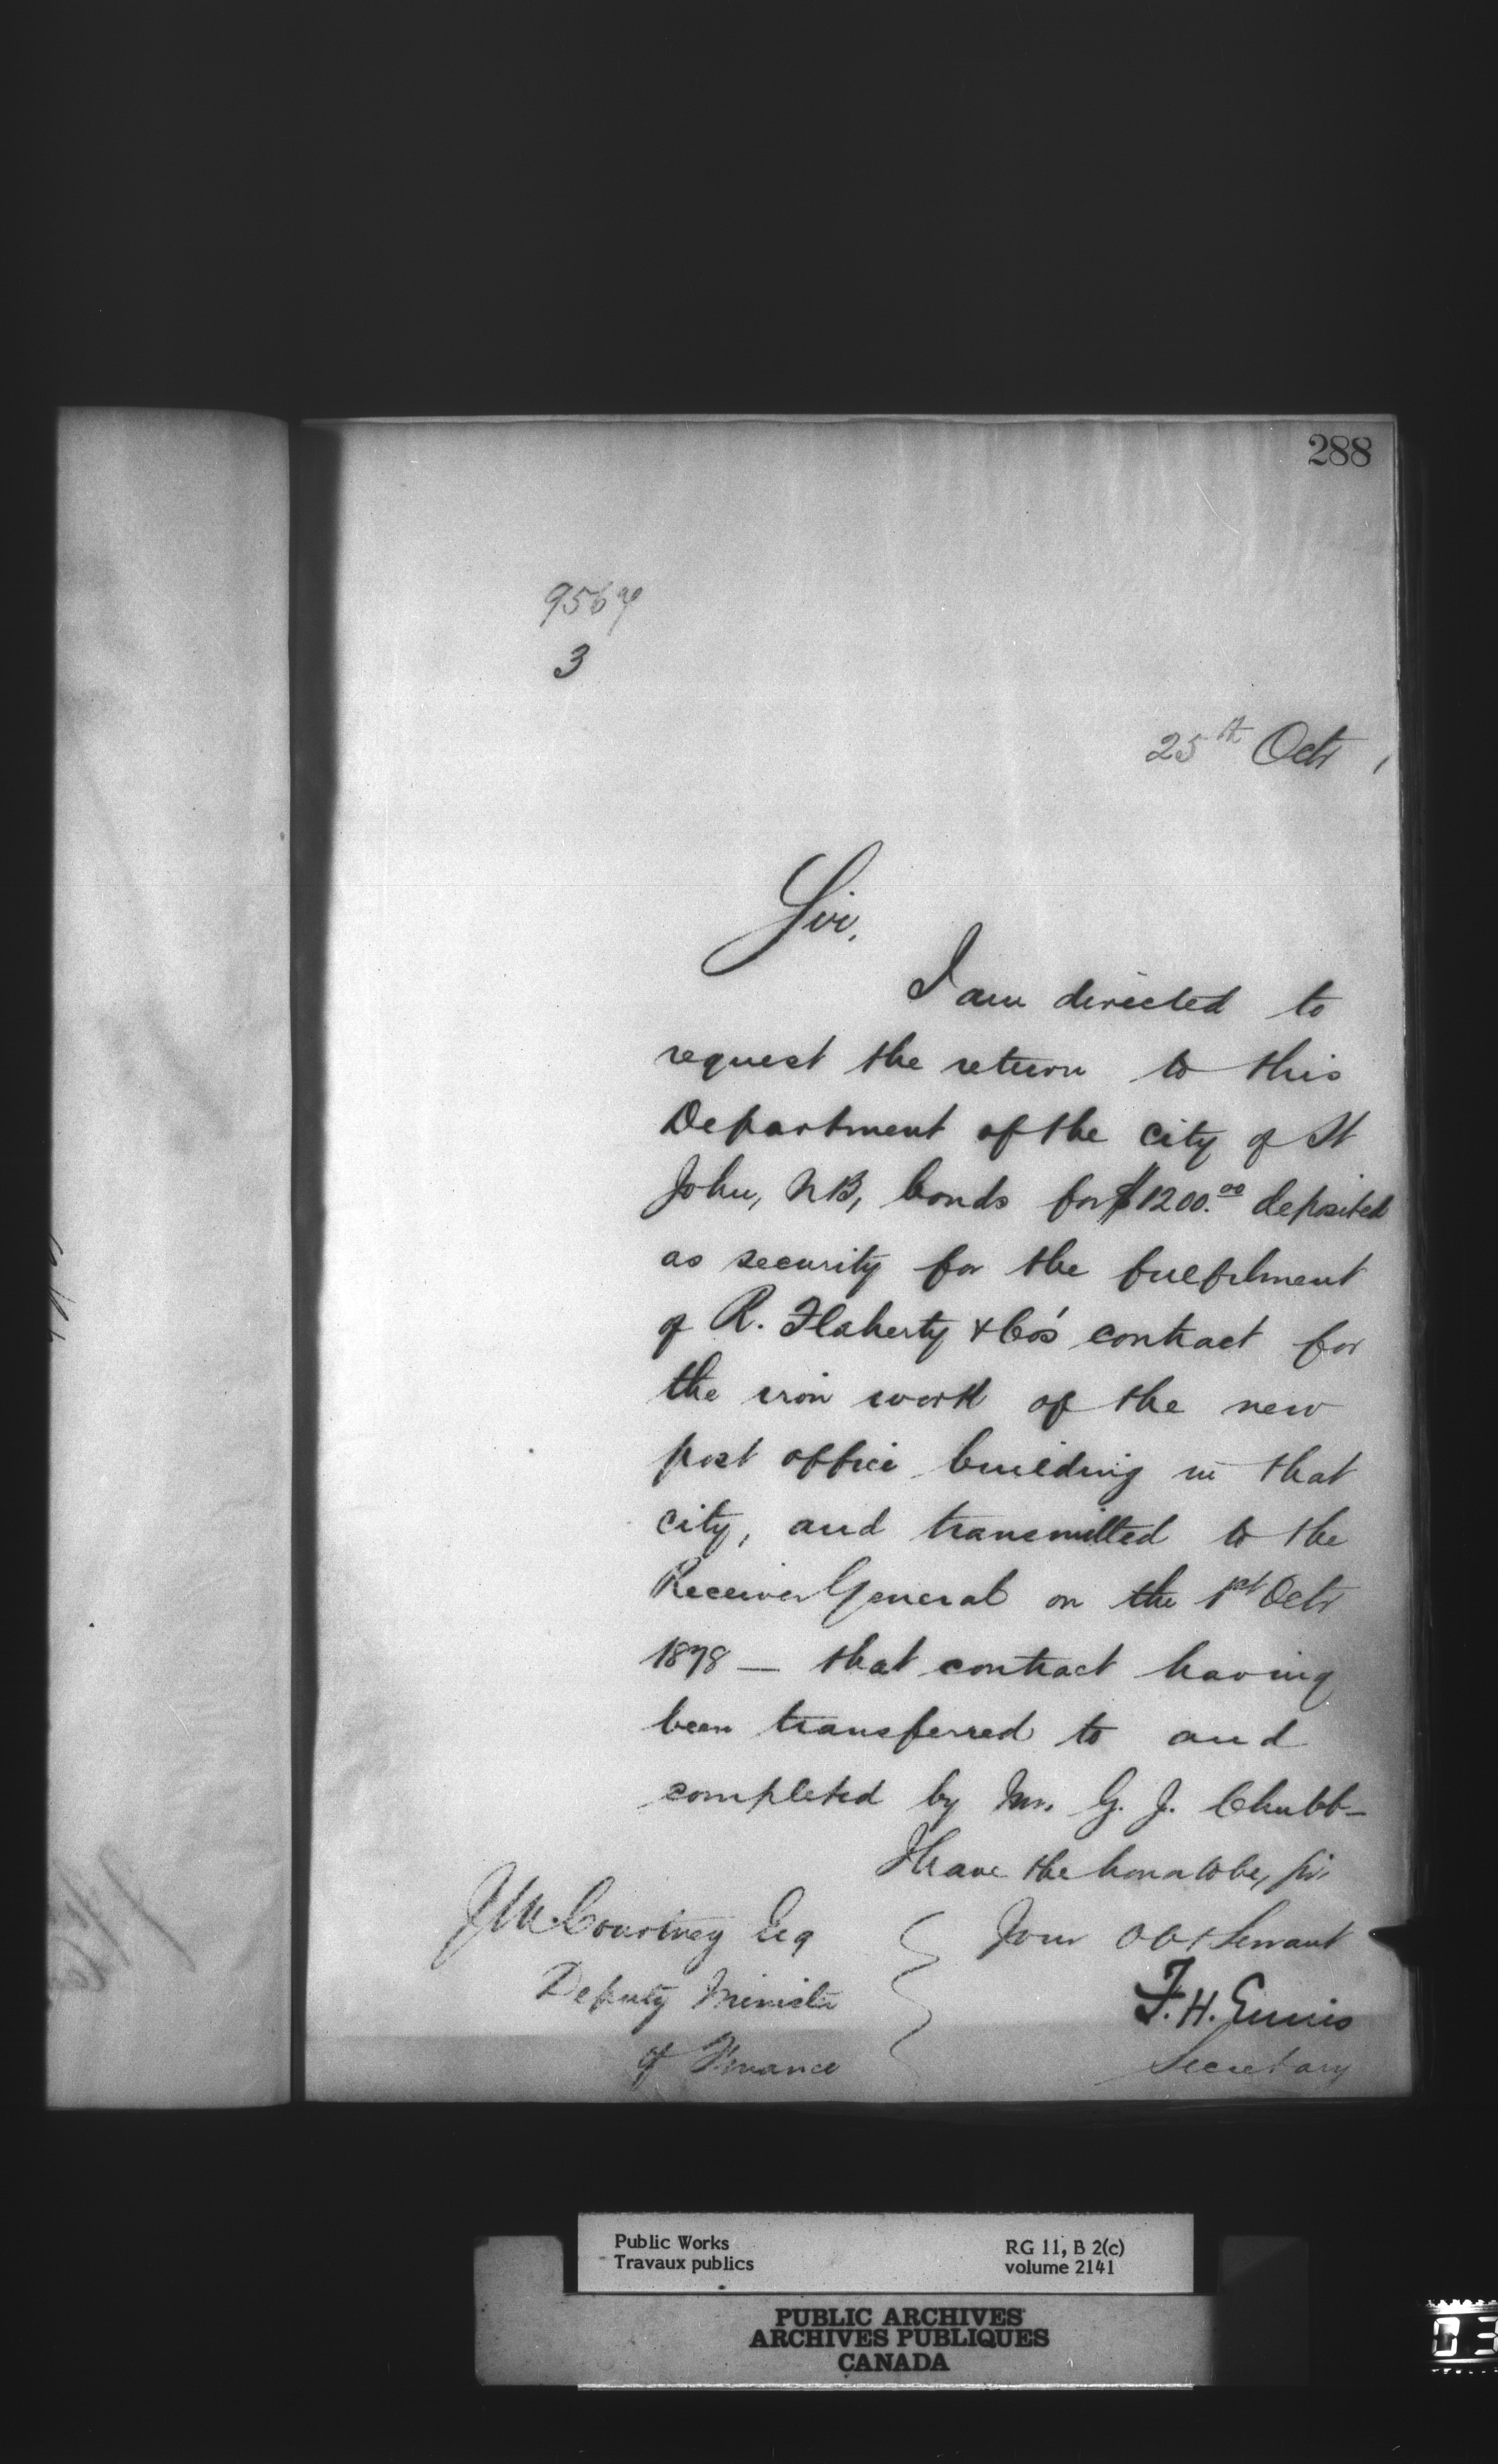 288
3
25th Octr
Sir,
I am directed to
request the return to this
Department of the city of St
John, NB, bonds for $1200.00 deposited
as security for the fulfilment
of R. Flaherty & Co's contract for
the iron work of the new
post office building in that
city, and transmitted to the
Receiver General on the 1st Octr
1878 — that contract having
been transferred to and
completed by Mr. G. J. Chubb —
I have the honor to be, Sir,
Your Obt Servant
F. H. Ennis
Secretary
J M Courtney Esq
Deputy Minister
of Finance
Public Works
Travaux publics
RG 11, B 2(c)
volume 2141
PUBLIC ARCHIVES
ARCHIVES PUBLIQUES
CANADA